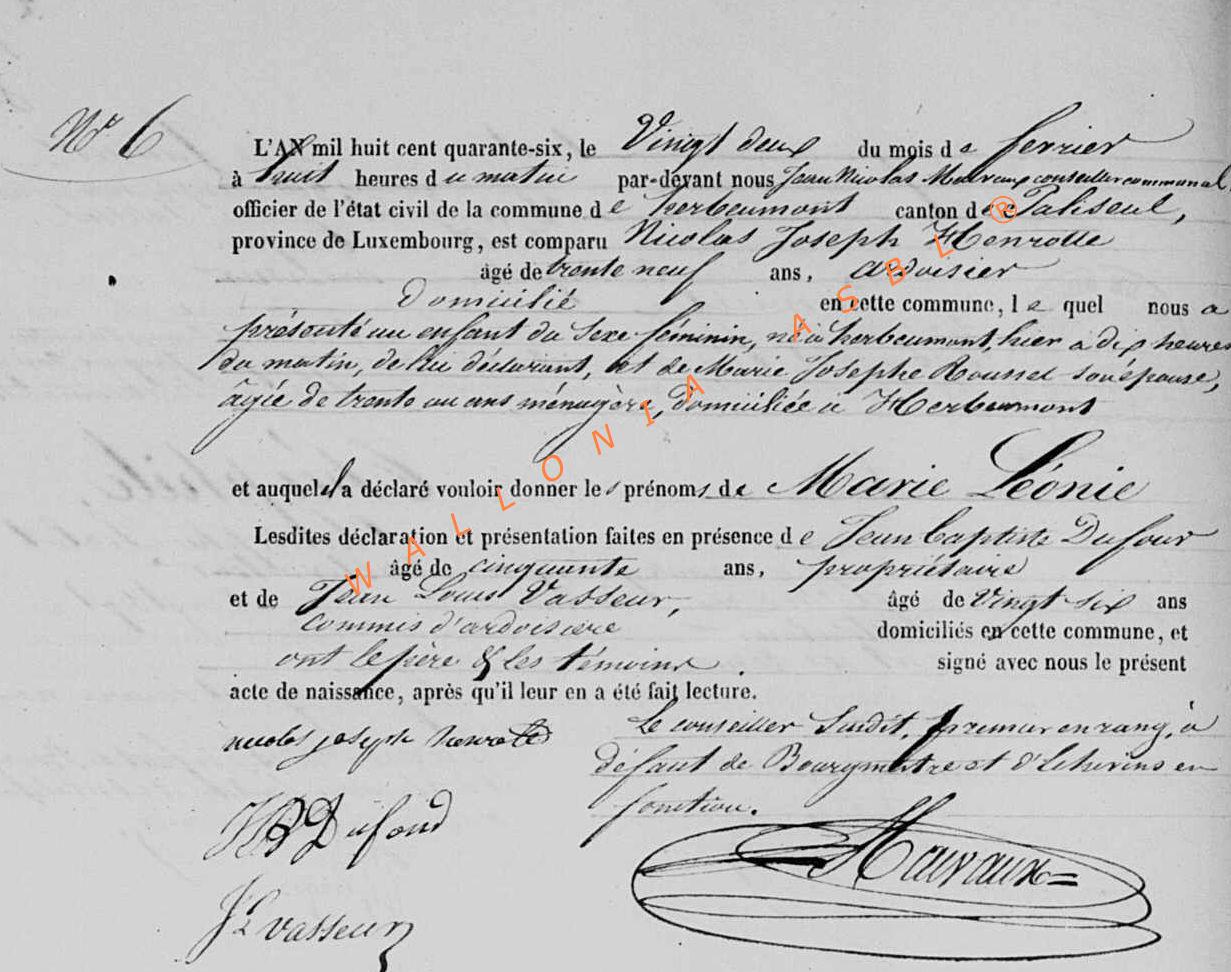 Nr 6
L'AN mil huit cent quarante-six, le Vingt deux du mois de fevrier
à huit heures du matin par-devant nous Jean Nicolas Mauvaux conseiller communal
officier de l'état civil de la commune de herbeumont canton de Paliseul,
province de Luxembourg, est comparu Nicolas Joseph Henrotte
âgé de trente neuf ans, ardoisier
domicilié en cette commune, le quel nous a
présenté un enfant du sexe féminin, né à herbeumont, hier à dix heures
du matin, de lui déclarant, et de Marie Josephe Roussel son épouse,
âgée de trente un ans ménagère, domiciliée à Herbeumont
et auquel il a déclaré vouloir donner les prénoms de Marie Léonie
Lesdites déclaration et présentation faites en présence de Jean Baptiste Dufour
âgé de cinquante ans, propriétaire
et de Jean Louis Vasseur, âgé de Vingt six ans
commis d'ardoisiere domiciliés en cette commune, et
ont le père & les témoins signé avec nous le présent
acte de naissance, après qu'il leur en a été fait lecture.
nicolas joseph henrotte
Le conseiller Susdit, premier en rang, à
défaut de Bourgmestre et d'Echevins en
fonction.
JB Dufour
Mauvaux
JL vasseur
WALLONIA ASBL ®